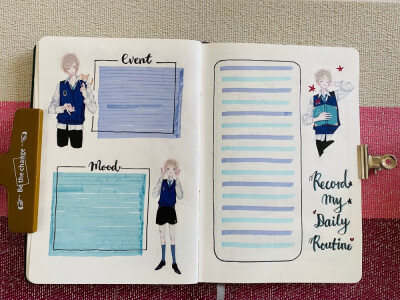 Be the change
Event
Mood
Record
My
Daily
Routine